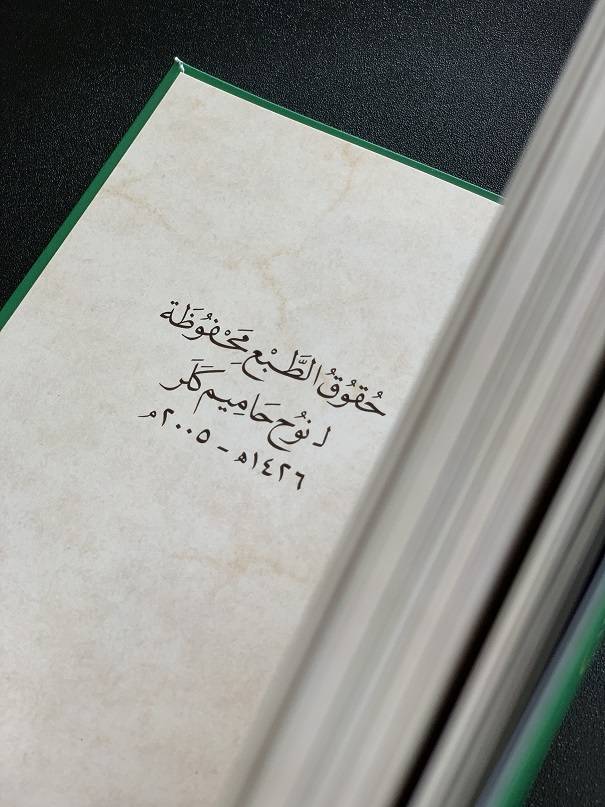 حُقُوقُ الطَّبْعِ مَحْفُوظَة
لِنُوح حَامِيم كَلَر
١٤٢٦هـ - ٢٠٠٥م